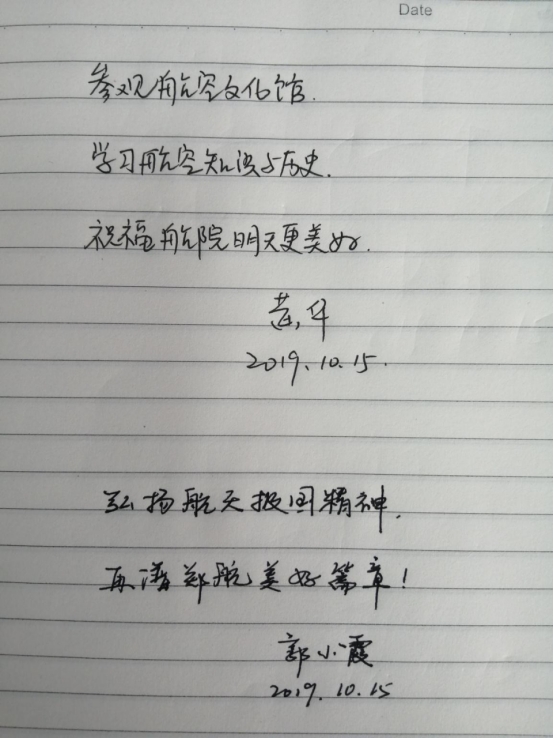 Date
参观航空文化馆.
学习航空知识与历史.
祝福航院明天更美好.
2019.10.15.
弘扬航天报国精神,
再谱郑航美好篇章!
郭小霞
2019.10.15